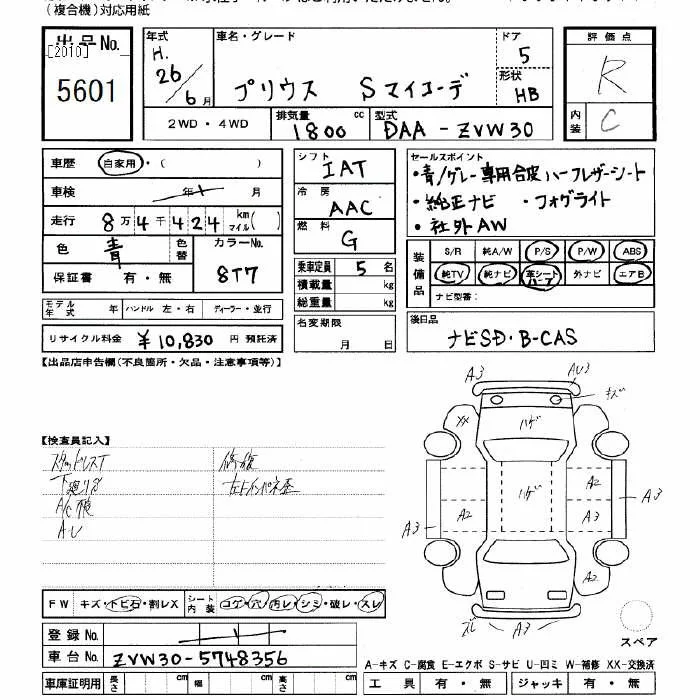 (複合機)対応用紙
出品No.
[2010]
5601
年式
H.
26/6月
車名・グレード
プリウス Sマイコーデ
ドア
5
形状
HB
評価点
R
内装
C
2WD・4WD
排気量
1800 cc
型式
DAA-ZVW30
車歴 自家用・( )
車検 年 月
走行 8万4千424 km マイル( )
色 青 色替 カラーNo. 8T7
保証書 有・無
モデル年式 年 ハンドル 左・右 ディーラー・並行
リサイクル料金 ¥10,830 円 預託済
シフト
IAT
冷房
AAC
燃料
G
乗車定員 5 名
積載量 kg
総重量 kg
名変期限
月 日
セールスポイント
・青/グレー専用合皮ハーフレザーシート
・純正ナビ ・フォグライト
・社外AW
装備品
S/R 純A/W P/S P/W ABS
純TV 純ナビ 革シート ハーフ 外ナビ エアB
ナビ型番:
後日品
ナビSD・B-CAS
【出品店申告欄(不良箇所・欠品・注意事項等)】
【検査員記入】
スタッドレスT
下廻りサビ
修復
FW キズ・トビ石・割レX シート内装 コゲ・穴・汚レ・シミ・破レ・スレ
登録No.
車台No. ZVW30-5748356
車庫証明用 長さ cm 幅 cm 高さ cm
A3
AU3
キズ
XX
ハゲ
A3
A2
ハゲ
A2
A3
A3
A2
スレ
A3
スペア
A-キズ C-腐食 E-エクボ S-サビ U-凹ミ W-補修 XX-交換済
工具 有・無 ジャッキ 有・無